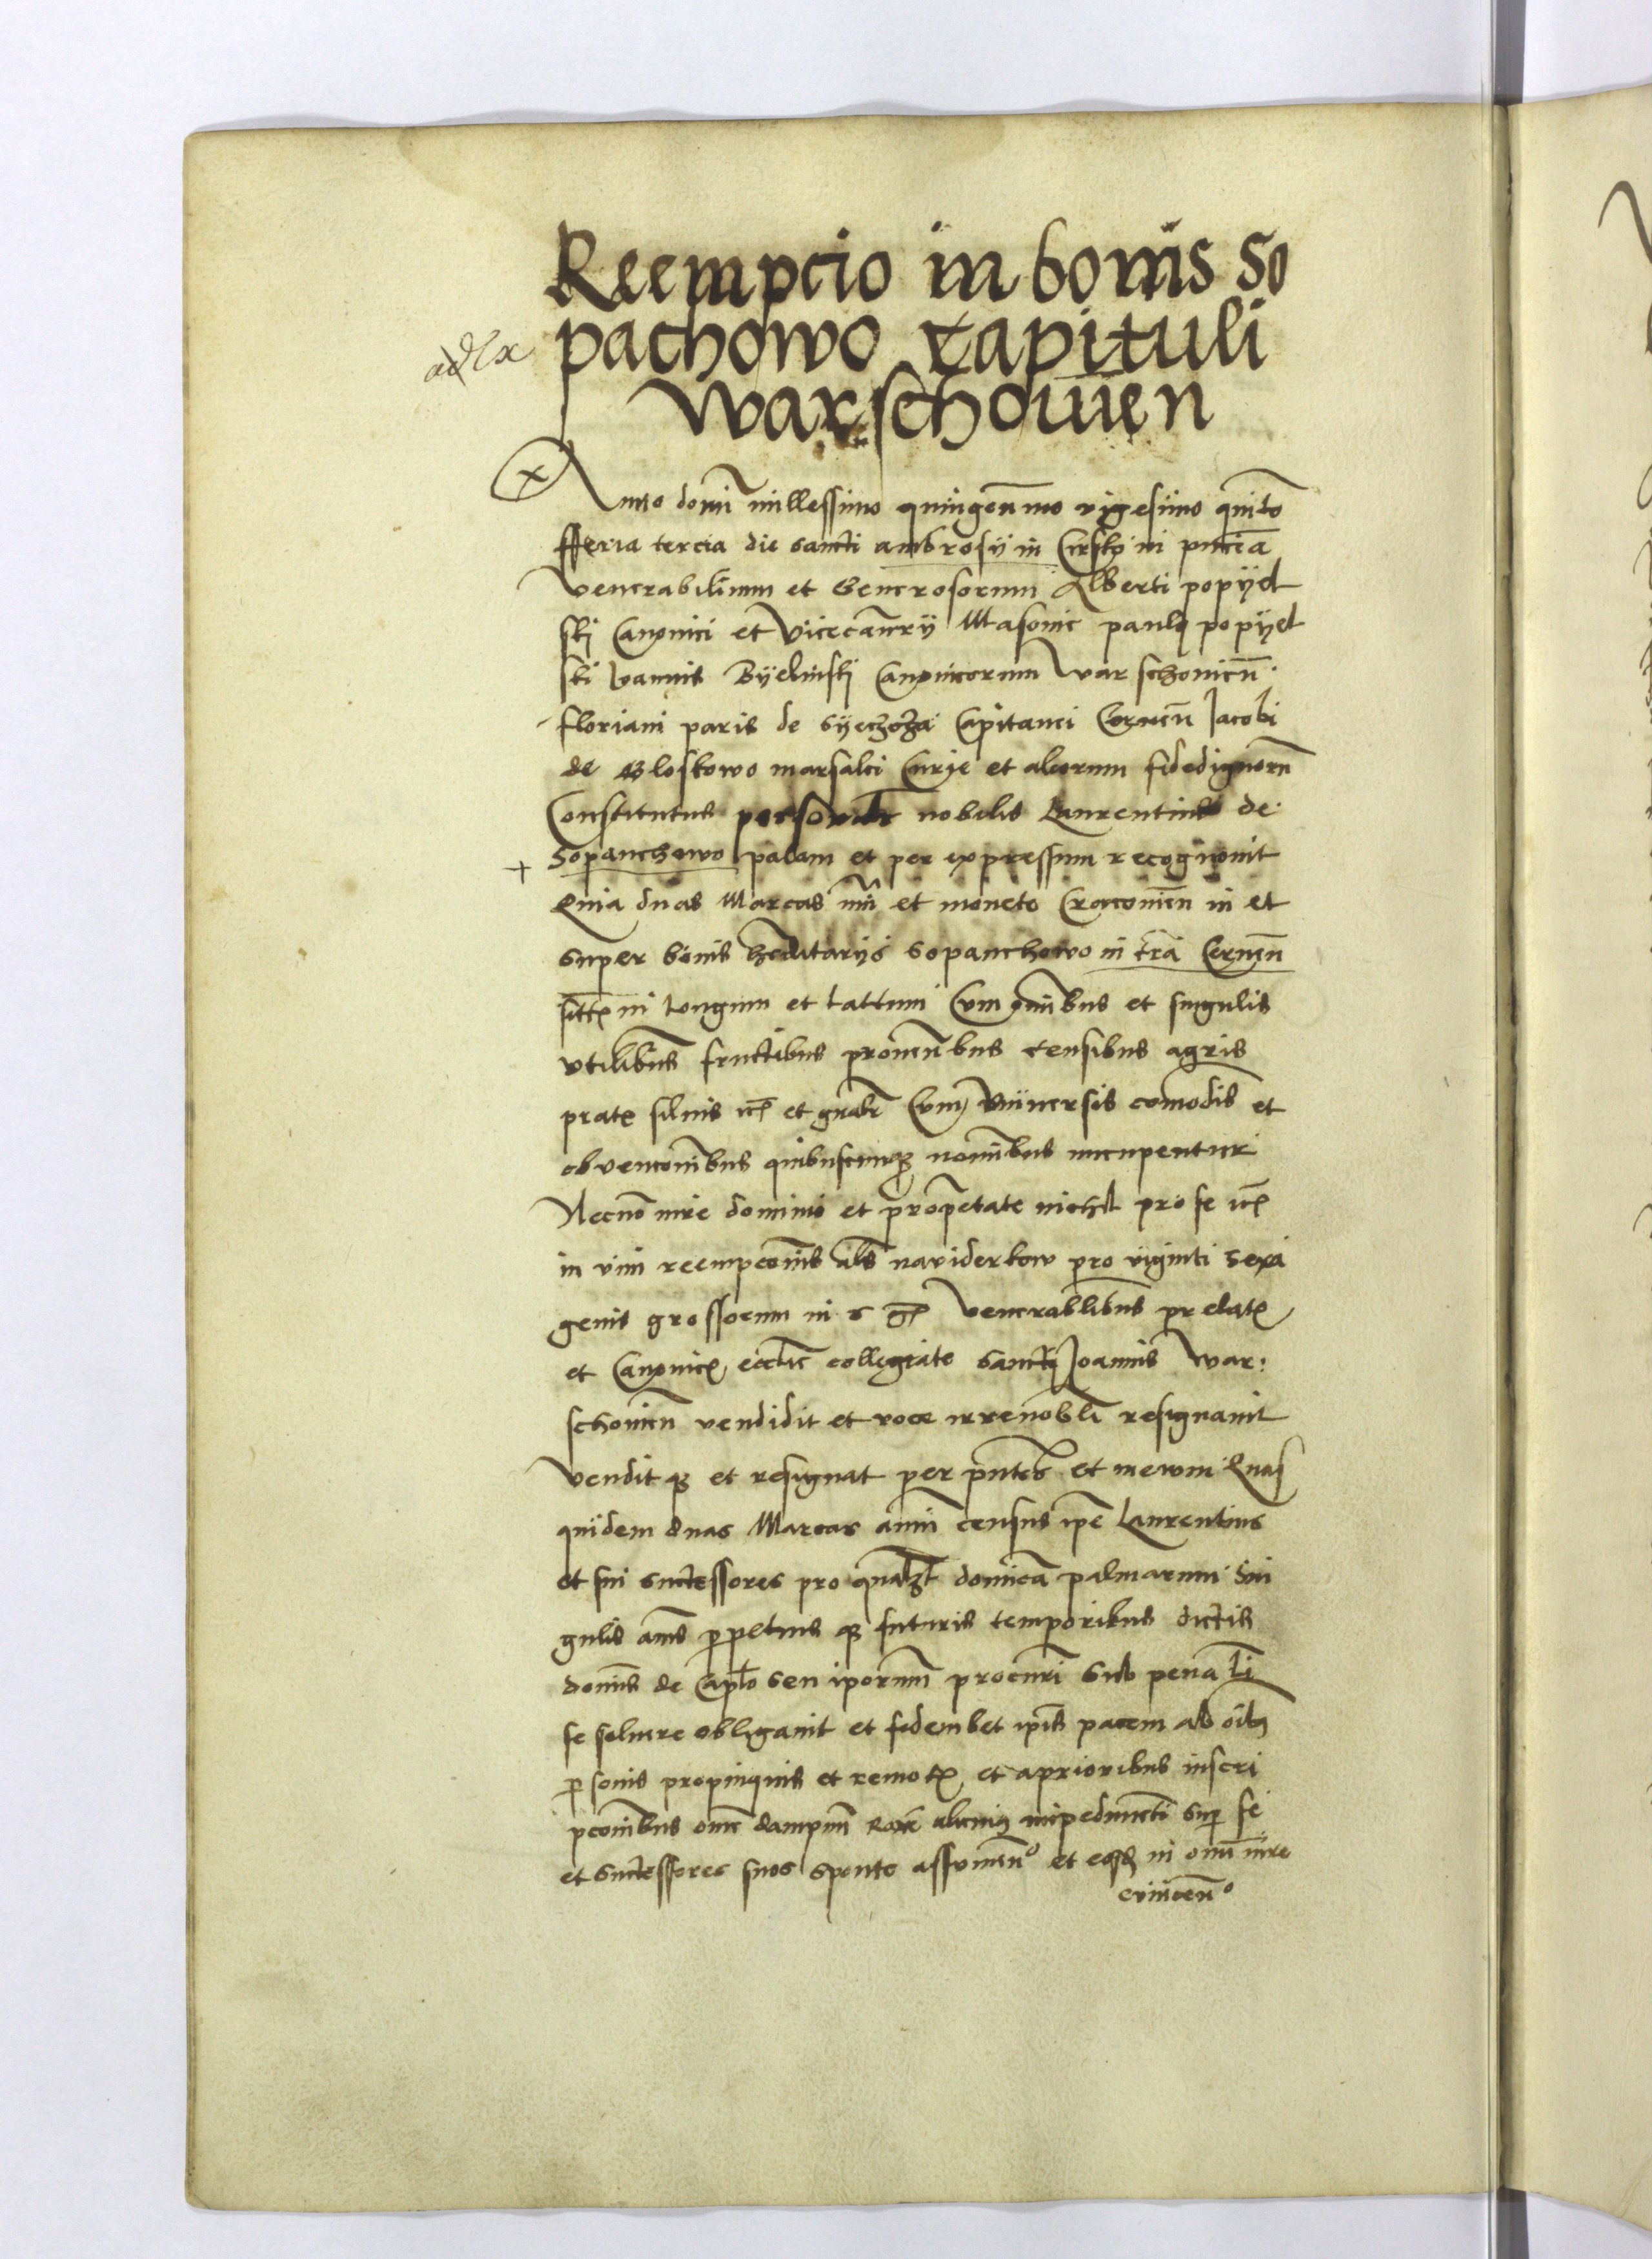 Reempcio in bonis So
pachowo capituli
Warschouien
Anno domi millessimo quingenmo vigesimo quinto
fferia tercia die sancti ambrosij in Cirsko in pntia
Venerabilium et Generosorum Alberti popyel
ski Canonici et Vicecancrij Masouie pauli popyel
ski Joannis Byelinski Canonicorum Warschouien
floriani paris de Capitanei Cernen Jacobi
de marsalci Curie et aliorum fidedignorum
Constitutus personalr nobilis Laurentius de
Sopanchowo palam et per expressum recognouit
Quia duas Marcas et monete Cracouien in et
super bonis hereditarijs Sopanchowo in tra Cernen
sitis in Longum et Lattum Cum omnibus et singulis
vtilibus fructibus prouenbus censibus agris
pratis siluis et gnalr Cum vniuersis comodis et
obvenconibus quibuscunque nominibus nuncupentur
Necno iure dominio et proprietate nichil pro se
in vim reempconis als naviderkow pro viginti sexa
genis grossorum in Venerablibus prelatis
et Canonicis ecclie collegiate Sancti Joannis War:
schouien vendidit et voce irreuobli resignauit
Vendit que et resignat per pntes et in ewm Quas
quidem duas Marcas anni census ipe Laurentius
et sui successores pro qualibet domica palmarum Sin
gulis annis perpetuis que futuris temporibus dictis
dominis de Caplo seu iporum procuri Sub pena
se soluere obligauit et ipis pacem ab oibus
personis propinquis et remotis et aprioribus inscri
pconibus omne dampnum alicuius impedimenti super se
et successores suos sponte assumen et in omni iure
euincen